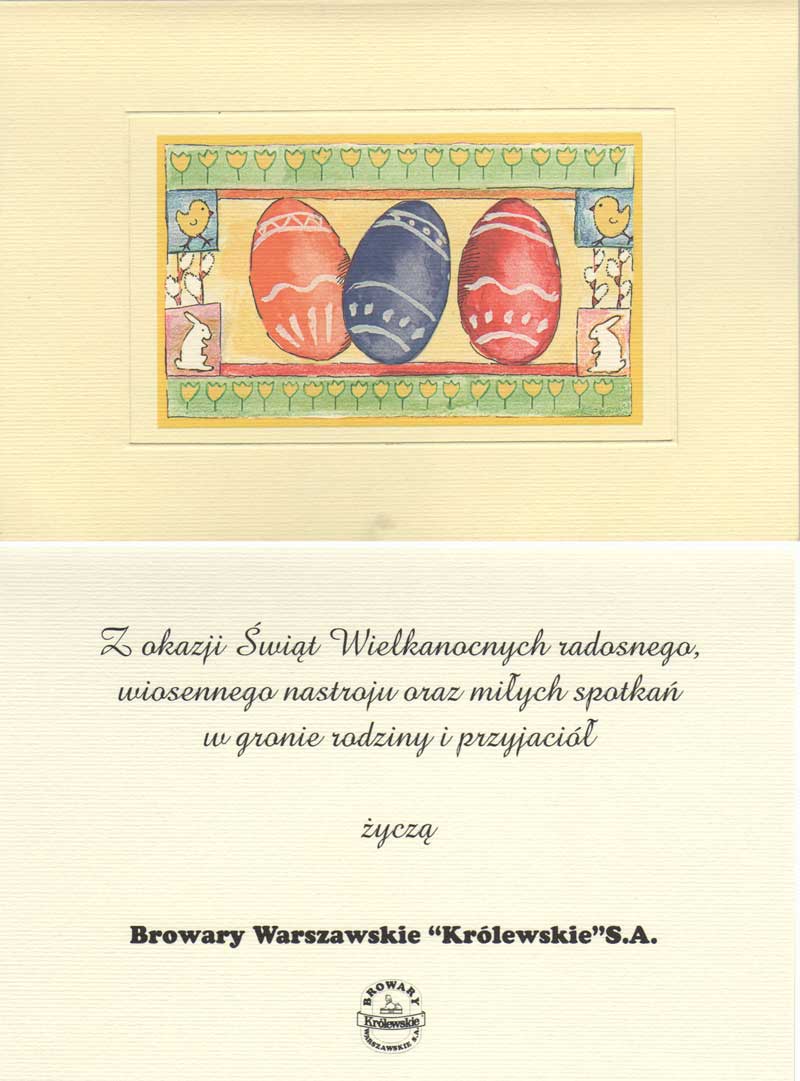 Z okazji Świąt Wielkanocnych radosnego,
wiosennego nastroju oraz miłych spotkań
w gronie rodziny i przyjaciół
życzą
Browary Warszawskie “Królewskie”S.A.
BROWARY
Królewskie
WARSZAWSKIE S.A.